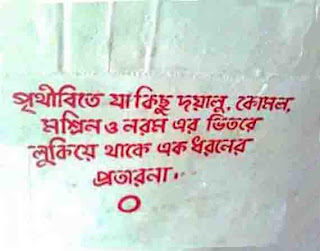 পৃথীবিতে যা কিছু দয়ালু, কোমল,
মশ্রিন ও নরম এর ভিতরে
লুকিয়ে থাকে এক ধরনের
প্রতারনা.